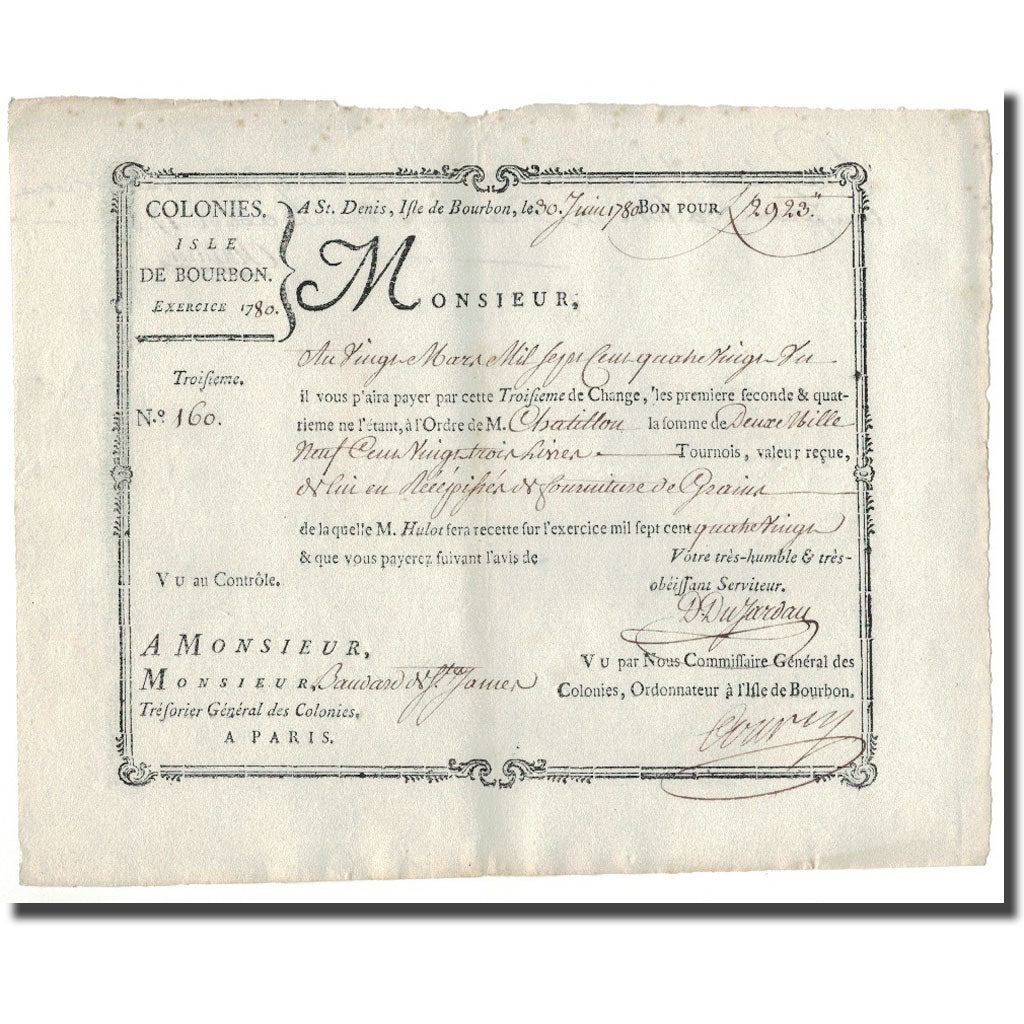 COLONIES.
ISLE
DE BOURBON.
EXERCICE 1780.
A St. Denis, Isle de Bourbon, le 30 Juin 1780 BON POUR £2923."
MONSIEUR,
Au Vingt Mars Mil Sept Cent quatre Vingt Un
Troisieme.
il vous p'aira payer par cette Troisieme de Change, 'les premiere seconde & qua-
N.º 160.
trieme ne l'étant, à l'Ordre de M. Chatillon la somme de Deux Mille
Neuf Cent Vingt trois Livres Tournois, valeur reçue,
de lui en Récépissés de fourniture de Grains
de la quelle M. Hulot sera recette sur l'exercice mil sept cent quatre Vingt
& que vous payerez suivant l'avis de
Votre très-humble & très-
obéissant Serviteur.
VU au Contrôle.
A MONSIEUR,
MONSIEUR, Baudard de St. James
Trésorier Général des Colonies,
A PARIS.
VU par Nous Commissaire Général des
Colonies, Ordonnateur à l'Isle de Bourbon.